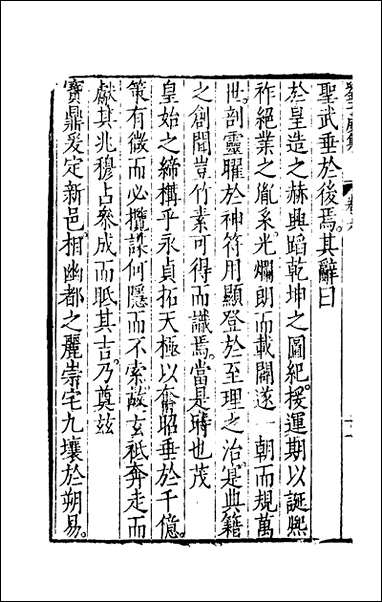 聖武垂於後焉其辭曰
於皇造之赫興蹈乾坤之圖紀援運期以誕熙
祚絕業之胤系光爛朗而載闢遂一朝而規萬
世剖靈曜於神符用顯登於至理之治寔典籍
之創聞豈竹素可得而議焉當是時也茂
皇始之締構乎永貞拓天極以奮昭垂於千億
策有徵而必攬謀何隱而不索故玄祗奔走而
獻其兆穆占參成而眡其吉乃奠茲
寶鼎爰定新邑相幽都之麗崇宅九壤於朔易